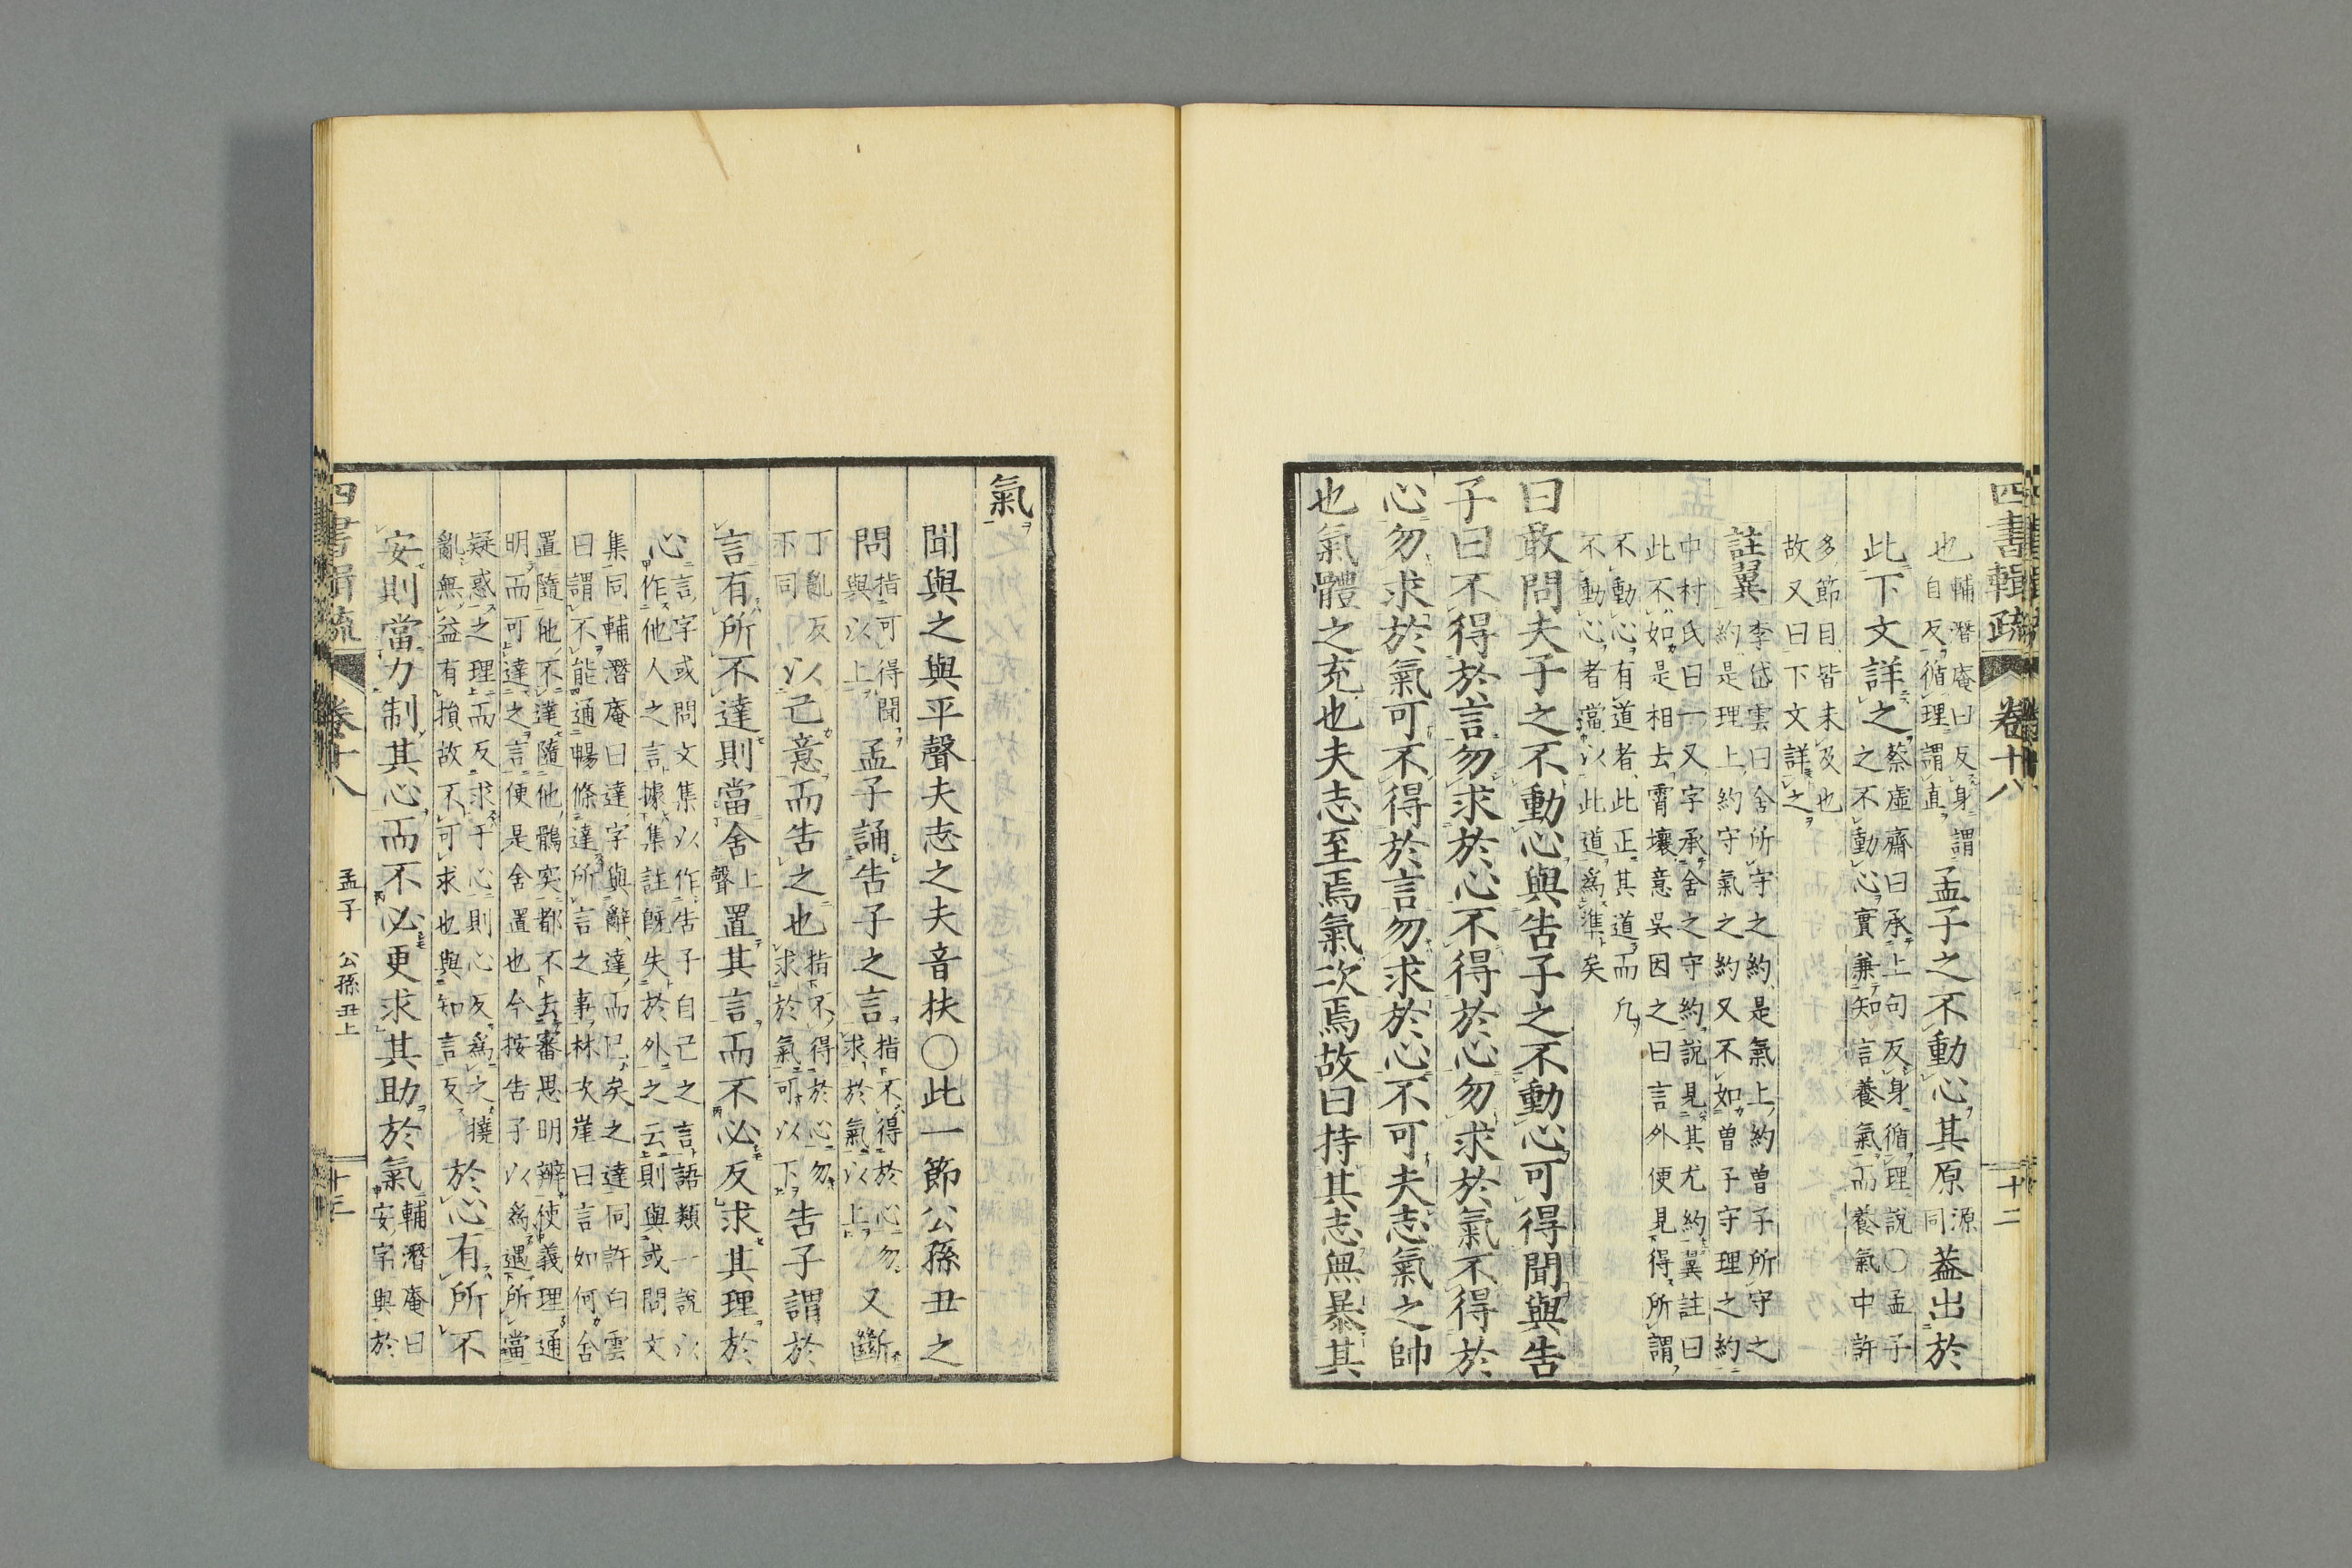 四書輯疏 卷十八 十二
也輔潛庵曰反身謂自反循理謂直孟子之不動心其原源同葢出於
此下文詳之蔡虛齋曰承上句反身循理說○孟子之不動心實兼知言養氣而養氣中許
多節目皆未及也故又曰下文詳之
註翼李岱雲曰舍所守之約是氣上約曾子所守之約是理上約守氣之約又不如曾子守理之約
中村氏曰一又字承舍之守約說見其尤約翼註曰此不如是相去霄壤意吳因之曰言外便見得所謂
不動心有道者此正其道而凡不動心者當以此道爲準矣
曰敢問夫子之不動心與告子之不動心可得聞與告
子曰不得於言勿求於心不得於心勿求於氣不得於
心勿求於氣可不得於言勿求於心不可夫志氣之帥
也氣體之充也夫志至焉氣次焉故曰持其志無暴其
氣
聞與之與平聲夫志之夫音扶○此一節公孫丑之
問指可得聞與以上孟子誦告子之言指不得於心勿求於氣以上又斷
丁亂反以己意而告之也指不得於心勿求於氣可以下告子謂於
不同
言有所不達則當舍上聲置其言而不必反求其理於
心言字或問文集以作告子自己之言語類一說以作他人之言據集註旣失於外之云則與或問文
集同輔潛庵曰達字與辭達而已矣之達同許白雲曰謂不能通暢條達所言之事林次崖曰言如何舍
置隨他不達隨他鶻突都不去審思明辨使義理通明而可達之言便是舍置也今按告子以爲遇所當
疑惑之理而反求于心則心反爲之撓亂無益有損故不可求也與知言反於心有所不
安則當力制其心而不必更求其助於氣輔潛庵曰安字與於
四書輯疏 卷十八 孟子 公孫丑上 十二